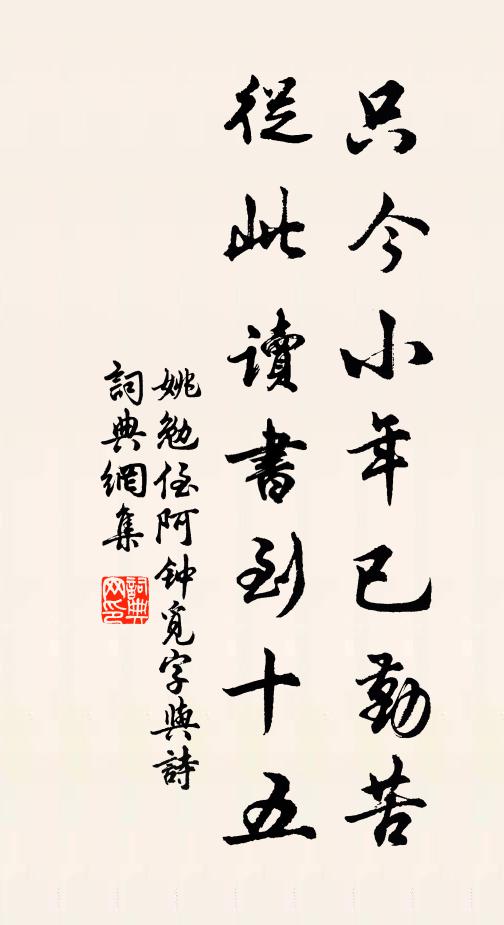 只今小年已勤苦
從此讀書到十五
姚勉侄阿钟覓字與詩
詞典網集
詞典網印